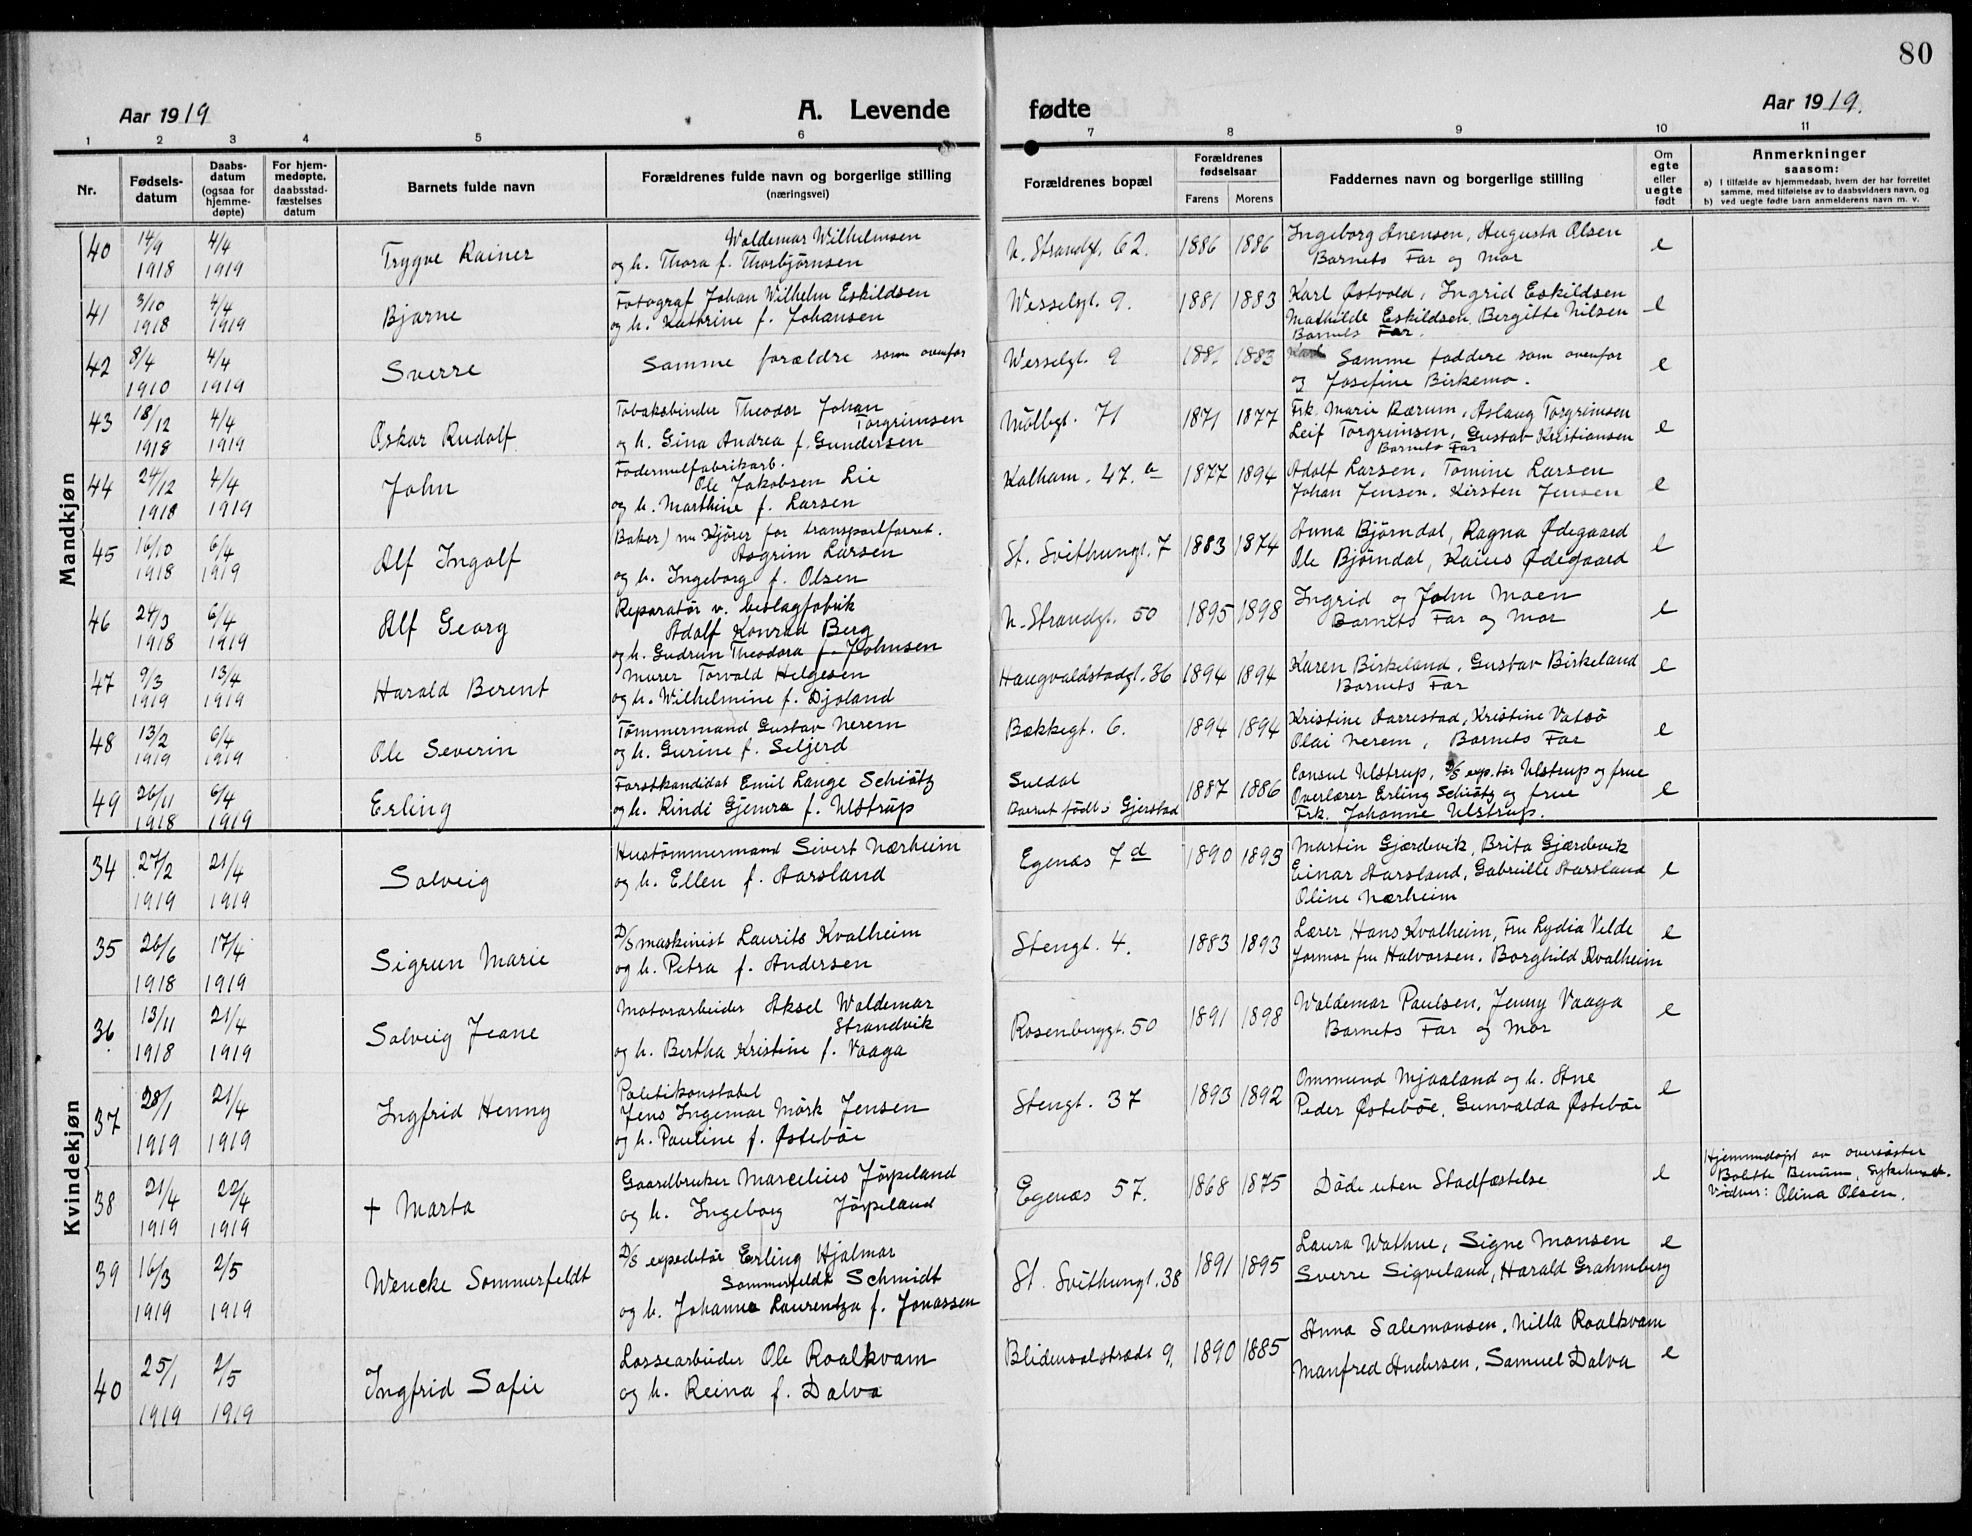 80
Aar 1919 A. Levende fødte Aar 1919.
1 2 3 4 5 6 7 8 9 10 11
Nr. Fødselsdatum Daabsdatum (ogsaa for hjemmedøpte) For hjemmedøpte, daabsstadfæstelses datum Barnets fulde navn Forældrenes fulde navn og borgerlige stilling (næringsvei) Forældrenes bopæl Forældrenes fødselsaar Farens Morens Faddernes navn og borgerlige stilling Om egte eller uegte født Anmerkninger saasom:
a) I tilfælde av hjemmedaab, hvem der har forrettet samme, med tilføielse av to daabsvidners navn, og
b) ved uegte fødte barn anmelderens navn m. v.
Mandkjøn
40 14/9 1918 4/4 1919 Trygve Rainer Waldemar Wilhelmsen
og h. Thora f. Thorbjørnsen N. Strandgt. 62. 1886 1886 Ingeborg Anensen, Augusta Olsen
Barnets Far og Mor e
41 3/10 1918 4/4 1919 Bjarne Fotograf Johan Wilhelm Eskildsen
og h. Kathrine f. Johansen Wesselgt. 9. 1881 1883 Karl Østvold, Ingrid Eskildsen
Mathilde Eskildsen, Bergitte Nilsen
Barnets Far. e
42 8/4 1910 4/4 1919 Sverre Samme forældre som ovenfor Wesselgt. 9 1881 1883 Samme faddere som ovenfor
og Josefine Birkemo. e
43 18/12 1918 4/4 1919 Oskar Rudolf Tobaksbinder Theodor Johan
Torgrimsen
og h. Gina Andrea f. Gundersen Møllegt. 71 1871 1877 Frk. Marie Rærum, Aslaug Torgrimsen
Leif Torgrimsen, Gustav Kristiansen
Barnets Far e
44 24/12 1918 4/4 1919 John Fodermelfabrikarb.
Ole Jakobsen Lie
og h. Marthine f. Larsen Kalham. 47. a 1877 1894 Adolf Larsen, Tomine Larsen
Johan Jensen. Kirsten Jensen e
45 16/10 1918 6/4 1919 Alf Ingolf Baker) nu Kjører for transportforret.
Asgrim Larsen
og h. Ingeborg f. Olsen St. Svithungt. 7 1883 1874 Anna Bjørndal, Ragna Ødegaard
Ole Bjørndal, Kaius Ødegaard e
46 24/3 1918 6/4 1919 Alf Georg Reparatør v. beslagfabrik
Adolf Konrad Berg
og h. Gudrun Theodora f. Johnsen N. Strandgt. 50 1895 1898 Ingrid og John Moen
Barnets Far og Mor e
47 9/3 1919 13/4 1919 Harald Berent Murer Torvald Helgesen
og h. Wilhelmine f. Djoland Haugvaldstadgt. 36 1894 1894 Karen Birkeland, Gustav Birkeland
Barnets Far e
48 13/2 1919 6/4 1919 Ole Severin Tømmermand Gustav Nerem
og h. Gurine f. Seljerd Bekkegt. 6. 1894 1894 Kristine Aarrestad, Kristine Vatsø
Olai Nerem, Barnets Far e
49 26/11 1918 6/4 1919 Erling Forstkandidat Emil Lange Schiøtz
og h. Rindi Gjemra f. Ulstrup Suldal
Barnet født i Gjerstad 1887 1886 Consul Ulstrup, D/S exp.tør Ulstrup og frue
Overlærer Erling Schiøtz og frue
Frk. Johanne Ulstrup. e
Kvindekjøn
34 27/2 1919 21/4 1919 Solveig Hustømmermand Sivert Nærheim
og h. Ellen f. Aarsland Egenæs 7 d 1890 1893 Martin Gjærdevik, Brita Gjærdevik
Einar Aarsland, Gabrielle Aarsland
Oline Nærheim e
35 26/6 1918 17/4 1919 Sigrun Marie D/S maskinist Laurits Kvalheim
og h. Petra f. Andersen Stengt. 4. 1883 1893 Lærer Hans Kvalheim, Fru Lydia Velde
Farmor fru Halvorsen. Borghild Kvalheim e
36 13/11 1918 21/4 1919 Solveig Jeane Motorarbeider Aksel Waldemar
Strandvik
og h. Bertha Kristine f. Vaaga Rosenberggt. 50 1891 1898 Waldemar Paulsen, Jenny Vaaga
Barnets Far og Mor e
37 28/1 1919 21/4 1919 Ingfrid Henny Politikonstabel
Jens Ingemar Mørk Jensen
og h. Pauline f. Østebøe Stengt. 37 1893 1892 Ommund Mjaaland og h. Ane
Peder Østebøe, Gunvalda Østebøe e
38 21/4 1919 22/4 1919 + Marta Gaardbruker Marcelius Jørpeland
og h. Ingeborg Jørpeland Egenæs 57. 1868 1875 Døde uten Stadfæstelse e Hjemmedøpt av oversøster
Bolette Sykehuset.
Vidner: Olina Olsen.
39 16/3 1919 2/5 1919 Wencke Sommerfeldt D/S expeditør Erling Hjalmar
Sommerfeldt Schmidt
og h. Johanne Laurentza f. Jonassen St. Svithungt. 38 1891 1895 Laura Wathne, Signe Monsen
Sverre Sigveland, Harald Grahmberg e
40 25/1 1919 2/5 1919 Ingfrid Sofie Lossearbeider Ole Roalkvam
og h. Reina f. Dalva Blidensolstræde 9. 1890 1885 Anna Salemonsen. Nilla Roalkvam
Manfred Andersen, Samuel Dalva e